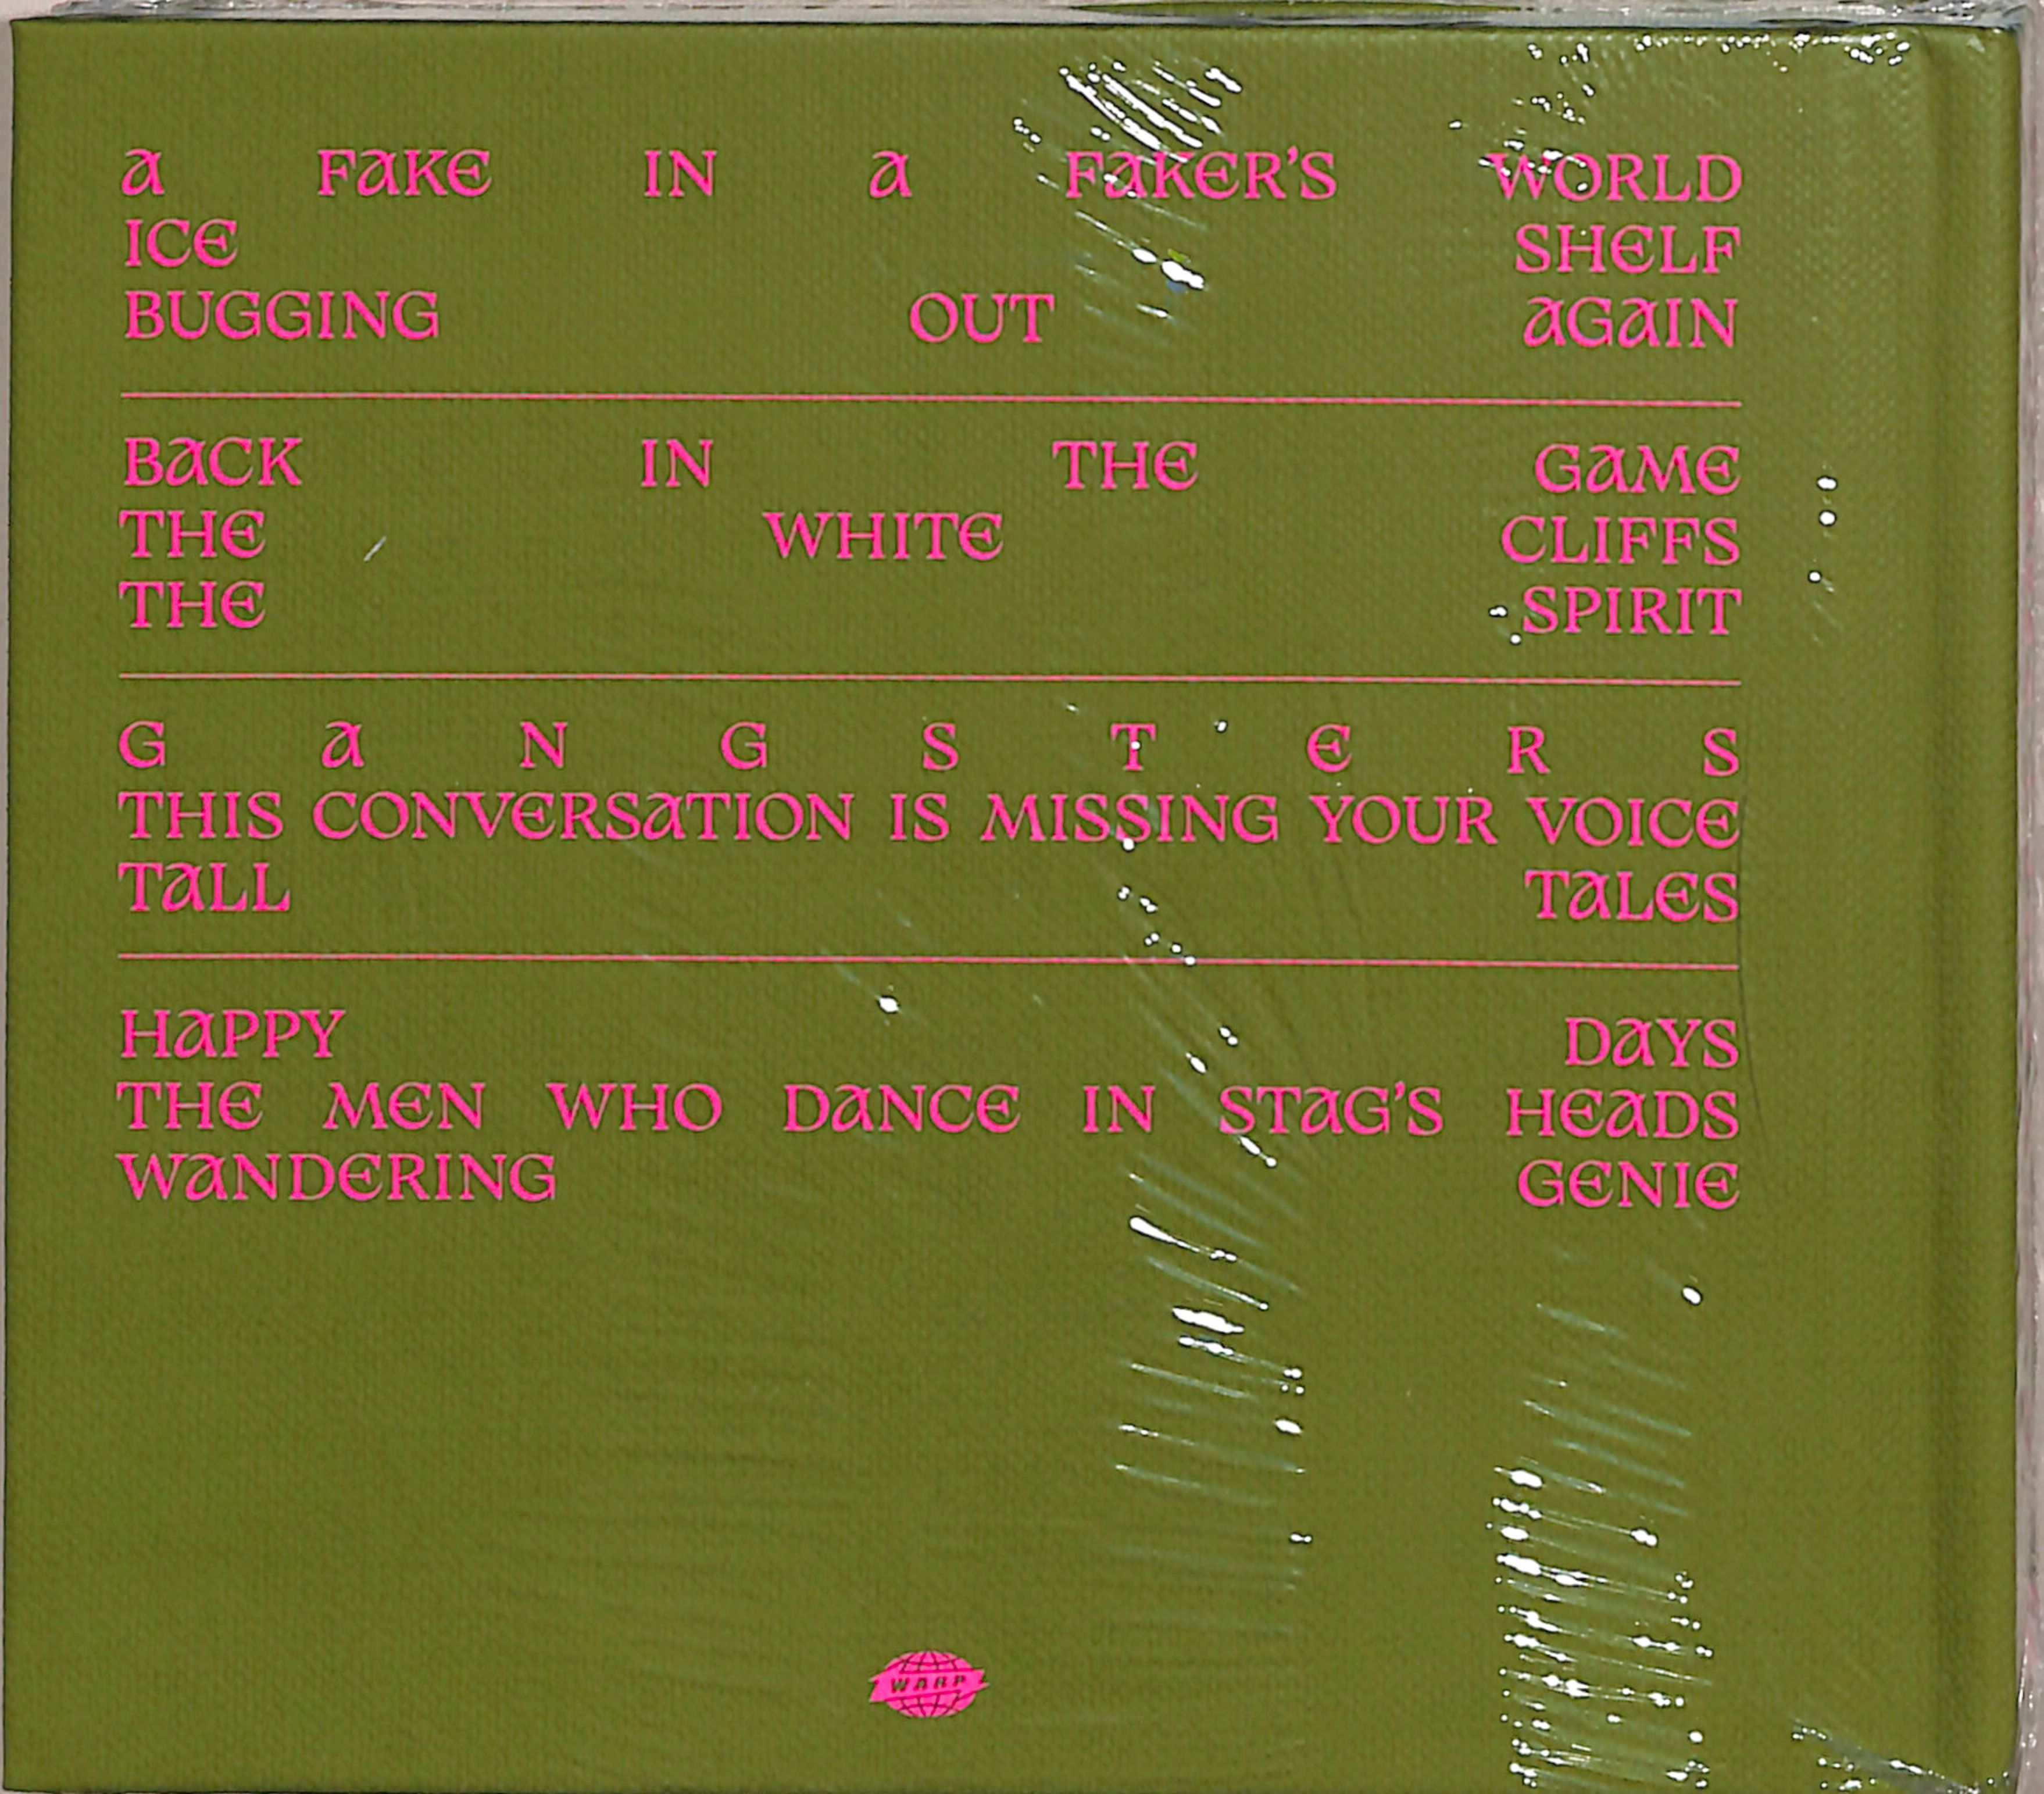 A FAKE IN A FAKER'S WORLD
ICE SHELF
BUGGING OUT AGAIN
BACK IN THE GAME
THE WHITE CLIFFS
THE SPIRIT
G A N G S T E R S
THIS CONVERSATION IS MISSING YOUR VOICE
TALL TALES
HAPPY DAYS
THE MEN WHO DANCE IN STAG'S HEADS
WANDERING GENIE
WARP